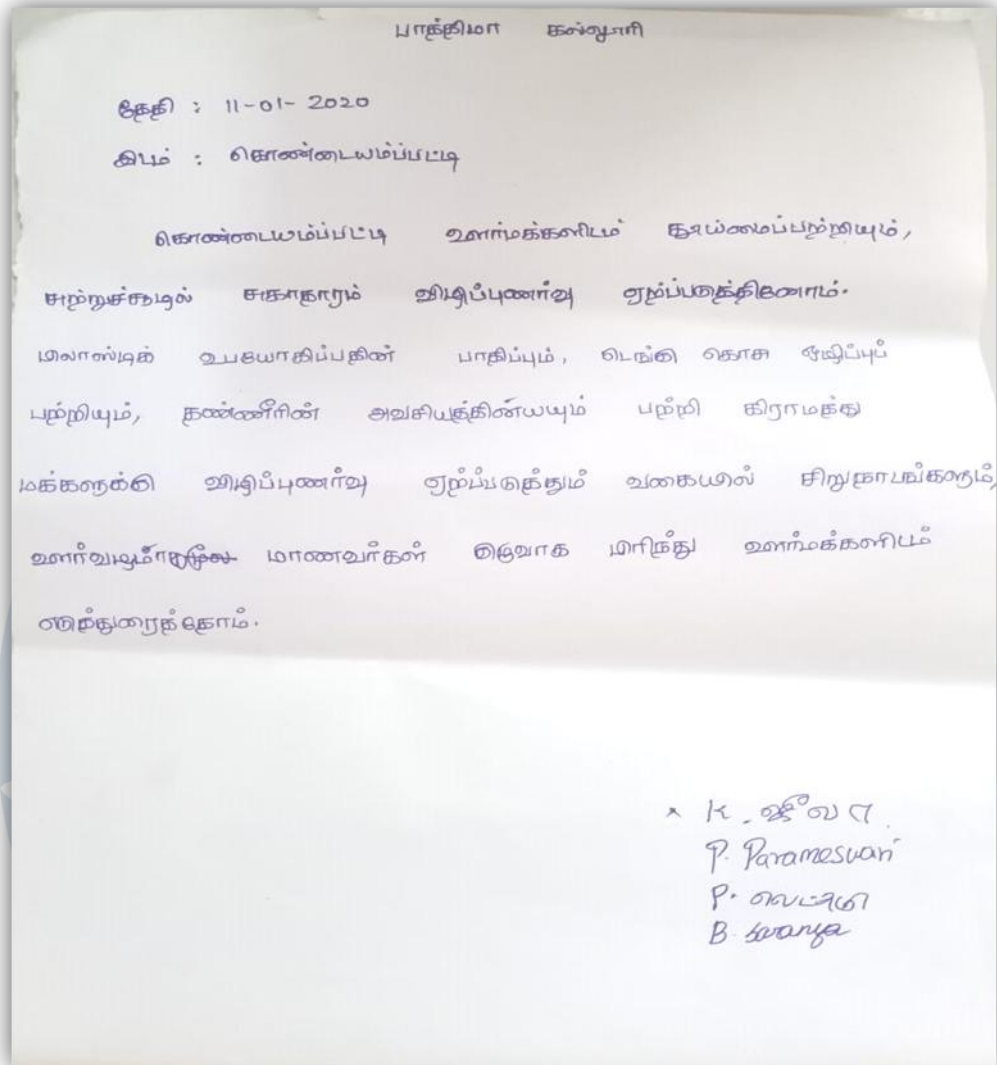 பாத்திமா கல்லூரி
தேதி : 11-01-2020
இடம் : கொண்டையம்ப்பட்டி
கொண்டையம்ப்பட்டி ஊர்மக்களிடம் தூய்மைப்பற்றியும்,
சுற்றுச்சூழல் சுகாதாரம் விழிப்புணர்வு ஏற்ப்படுத்தினோம்.
பிலாஸ்டிக் உபயோகிப்பதின் பாதிப்பும், டெங்கி கொசு ஒழிப்புப்
பற்றியும், தண்ணீரின் அவசியத்தின்யயும் பற்றி கிராமத்து
மக்களுக்கு விழிப்புணர்வு ஏற்ப்படுத்தும் வகையில் சிறுநாபங்களும்,
மாணவர்கள் குழுவாக பிரிந்து ஊர்மக்களிடம்
எடுத்துரைத்தோம்.
K. ஜீவா
P. Parameswari
P. லெட்சுமி
B. Saranya